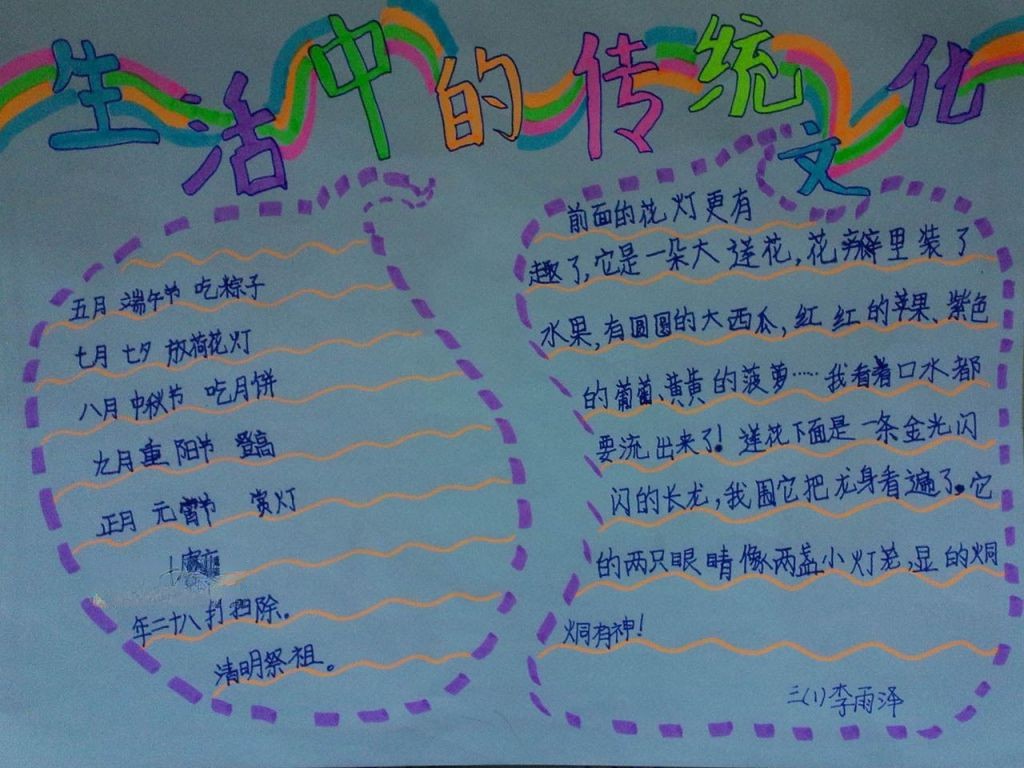 生活中的传统文化
五月 端午节 吃粽子
七月 七夕 放荷花灯
八月 中秋节 吃月饼
九月重阳节 登高
正月 元宵节 赏灯
年二十八打扫除。
清明祭祖。
前面的花灯更有
趣了,它是一朵大莲花,花瓣里装了
水果,有圆圆的大西瓜,红红的苹果、紫色
的葡萄、黄黄的菠萝……我看着口水都
要流出来了!莲花下面是一条金光闪
闪的长龙,我围它把龙身看遍了。它
的两只眼睛像两盏小灯笼,显的炯
炯有神!
三(1)李雨泽